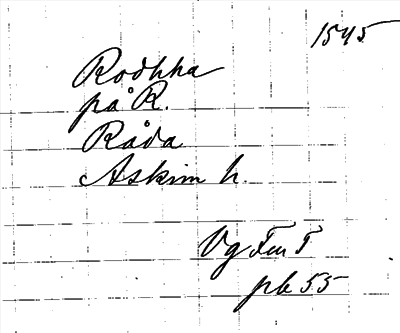 1545
Rodhha
på R.
Råda
Askim h.
Vg Fen T
pb 55